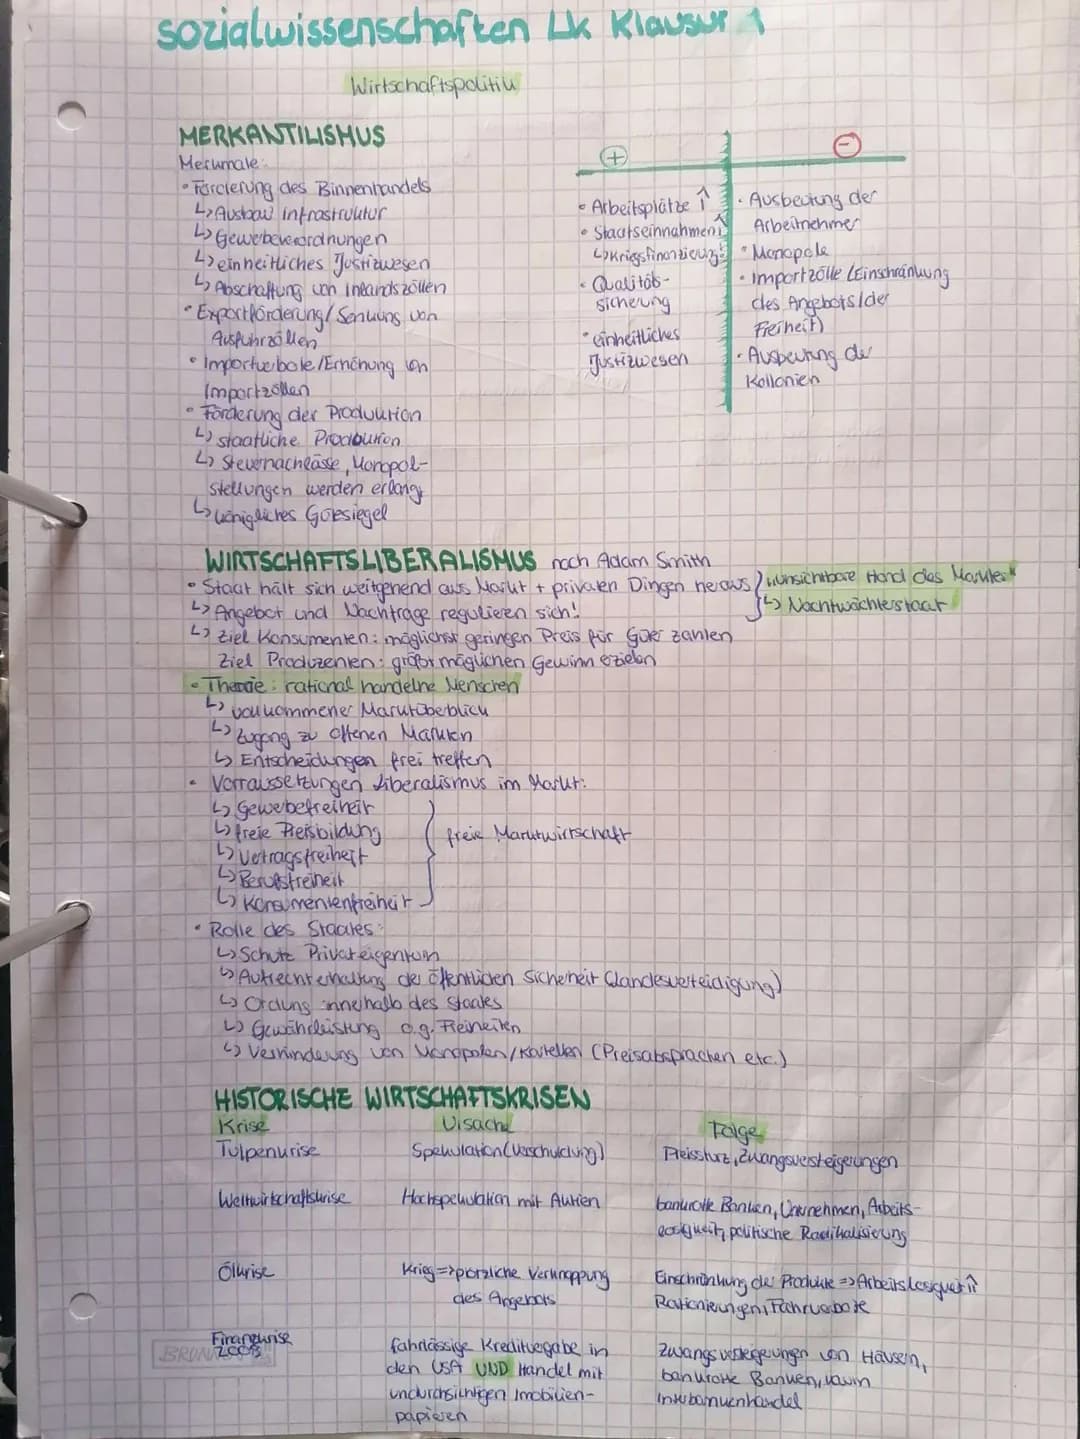 sozialwissenschaften Lk Klausur 1
Wirtschaftspolitik
MERKANTILISMUS
Merkmale:
• Förderung des Binnenhandels
↳ Ausbau Infrastruktur
↳ Gewerbeverordnungen
↳ einheitliches Justizwesen
↳ Abschaffung von Inlandszöllen
• Exportförderung/Senkung von
Ausfuhrzöllen
• Importverbote/Erhöhung von
Importzöllen
• Förderung der Produktion
↳ staatliche Produktion
↳ Steuernachlässe, Monopol-
stellungen werden erlangt
↳ königliches Gütesiegel
+
• Arbeitsplätze ↑
• Staatseinnahmen ↑
↳ Kriegsfinanzierung!
• Qualitäts-
sicherung
• einheitliches
Justizwesen
-
• Ausbeutung der
Arbeitnehmer
• Monopole
• Importzölle (Einschränkung
des Angebots/der
Freiheit)
• Ausbeutung der
Kollonien
WIRTSCHAFTSLIBERALISMUS nach Adam Smith
• Staat hält sich weitgehend aus Markt + privaten Dingen heraus
"unsichtbare Hand des Marktes"
↳ Nachtwächterstaat
↳ Angebot und Nachfrage regulieren sich!
↳ Ziel Konsumenten: möglichst geringen Preis für Güter zahlen
Ziel Produzenten: größtmöglichen Gewinn erzielen
• Theorie: rational handelne Menschen
↳ vollkommener Marktüberblick
↳ Zugang zu offenen Märkten
↳ Entscheidungen frei treffen
• Vorraussetzungen Liberalismus im Markt:
↳ Gewerbefreiheit
↳ freie Preisbildung
↳ Vertragsfreiheit
↳ Berufsfreiheit
↳ Konsumentenfreiheit
freie Marktwirtschaft
• Rolle des Staates:
↳ Schutz Privateigentum
↳ Aufrechterhaltung der öffentlichen Sicherheit (Landesverteidigung)
↳ Ordnung innerhalb des Staates
↳ Gewährleistung o.g. Freiheiten
↳ Verhinderung von Monopolen/Kartellen (Preisabsprachen etc.)
HISTORISCHE WIRTSCHAFTSKRISEN
Krise Ursache Folge
Tulpenkrise Spekulation (Verschuldung) Preissturz, Zwangsversteigerungen
Weltwirtschaftskrise Hochspekulation mit Aktien bankrotte Banken, Unternehmen, Arbeits-
losigkeit, politische Radikalisierung
Ölkrise Krieg => plötzliche Verknappung Einschränkung der Produkte => Arbeitslosigkeit ↑
des Angebots Rationierungen, Fahrverbote
Finanzkrise fahrlässige Kreditvergabe in Zwangsversteigerungen von Häusern,
2008 den USA UND Handel mit bankrotte Banken, kaum
undurchsichtigen Immobilien- Interbankenhandel
papieren